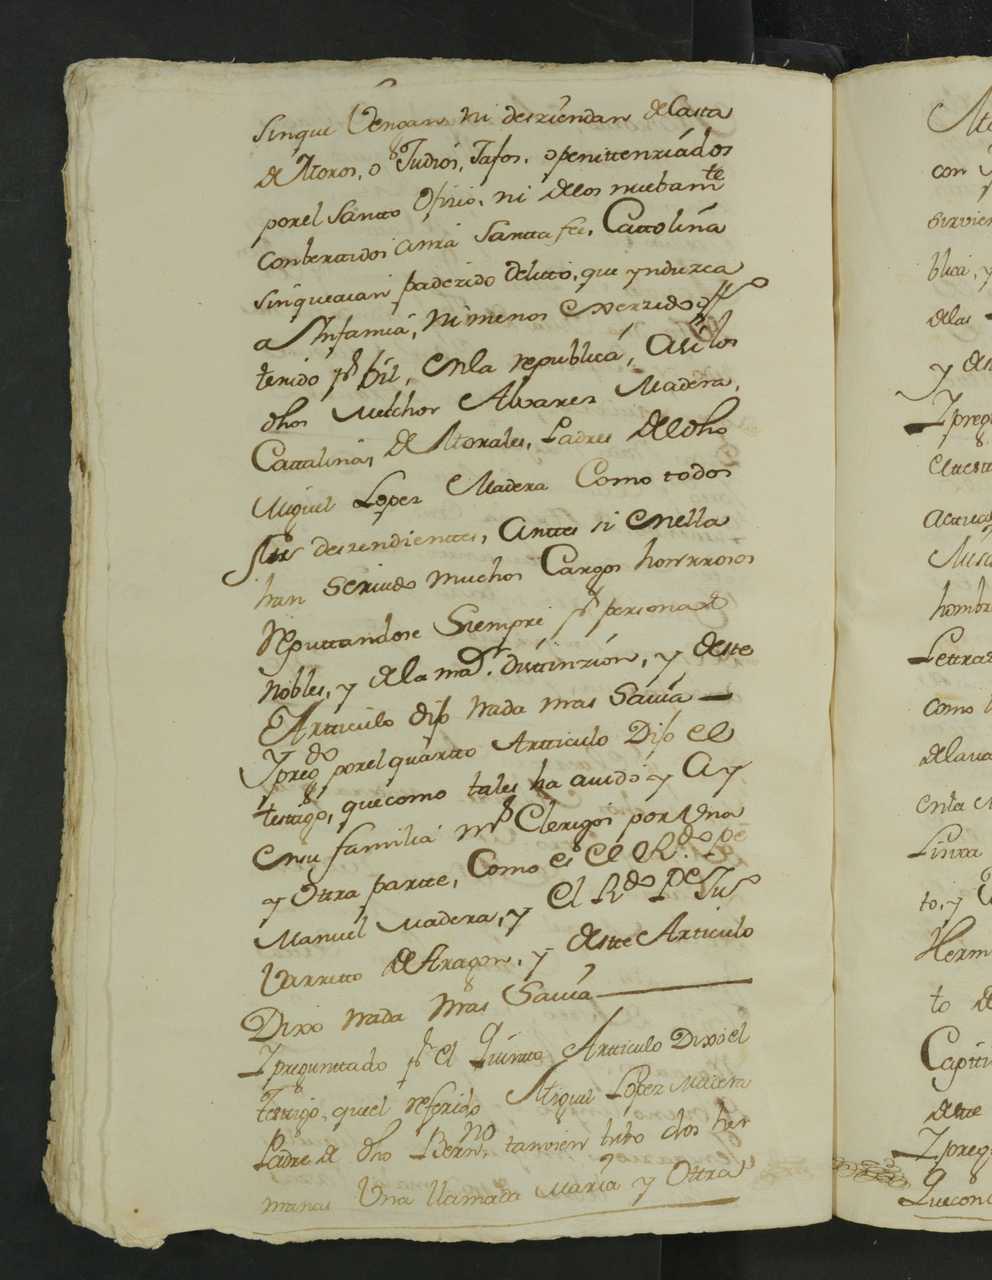 sinque Vengan, ni desziendan de Casta
de Moros, o Judios, Tafos, openittenziados
por el Santto Ofizio, ni delos nuebamte
Conberttidos anrã Santta fee, Cattolica
sinqueaian padezido delitto, que ynduzca
a Infamia, ni menos exerzido offo
tenido pr bil, en la republica, Asi los
dhos Melchor Alvarez Madera,
Cattalina, de Morales, Padres de dho
Miguel Lopez Madera Como todos
sus deszendienttes, Anttes si enella
han Servido muchos Cargos honrrosos
Reputtandose Siempre pr personas de
Nobles, y de la mar. disttinzion, y deste
Artticulo dijo Nada mas Savia
Ypregdo por el quartto Artticulo Dijo el
testtigo, que como tales ha avido y Ay
ensu familia ms Clerigos por Una
y Ottra partte, Como es el Rdo. Pe
Manuel Madera, y el Rdo Pe Jua
Varritto de Aragon, y destte Articulo
Dixo Nada mas Savia
Ypregunttado pr el Quintto Artticulo Dixo el
Testtigo, quel referido Miguel Lopez Madera
Padre de dho Bernno, tanvien tubo dos her
manas Una llamada Maria y Ottra
con
blica, y
delas
Ypreg
hombr
Lettra
como
Herm
to de
Capit
deste
Ypreg